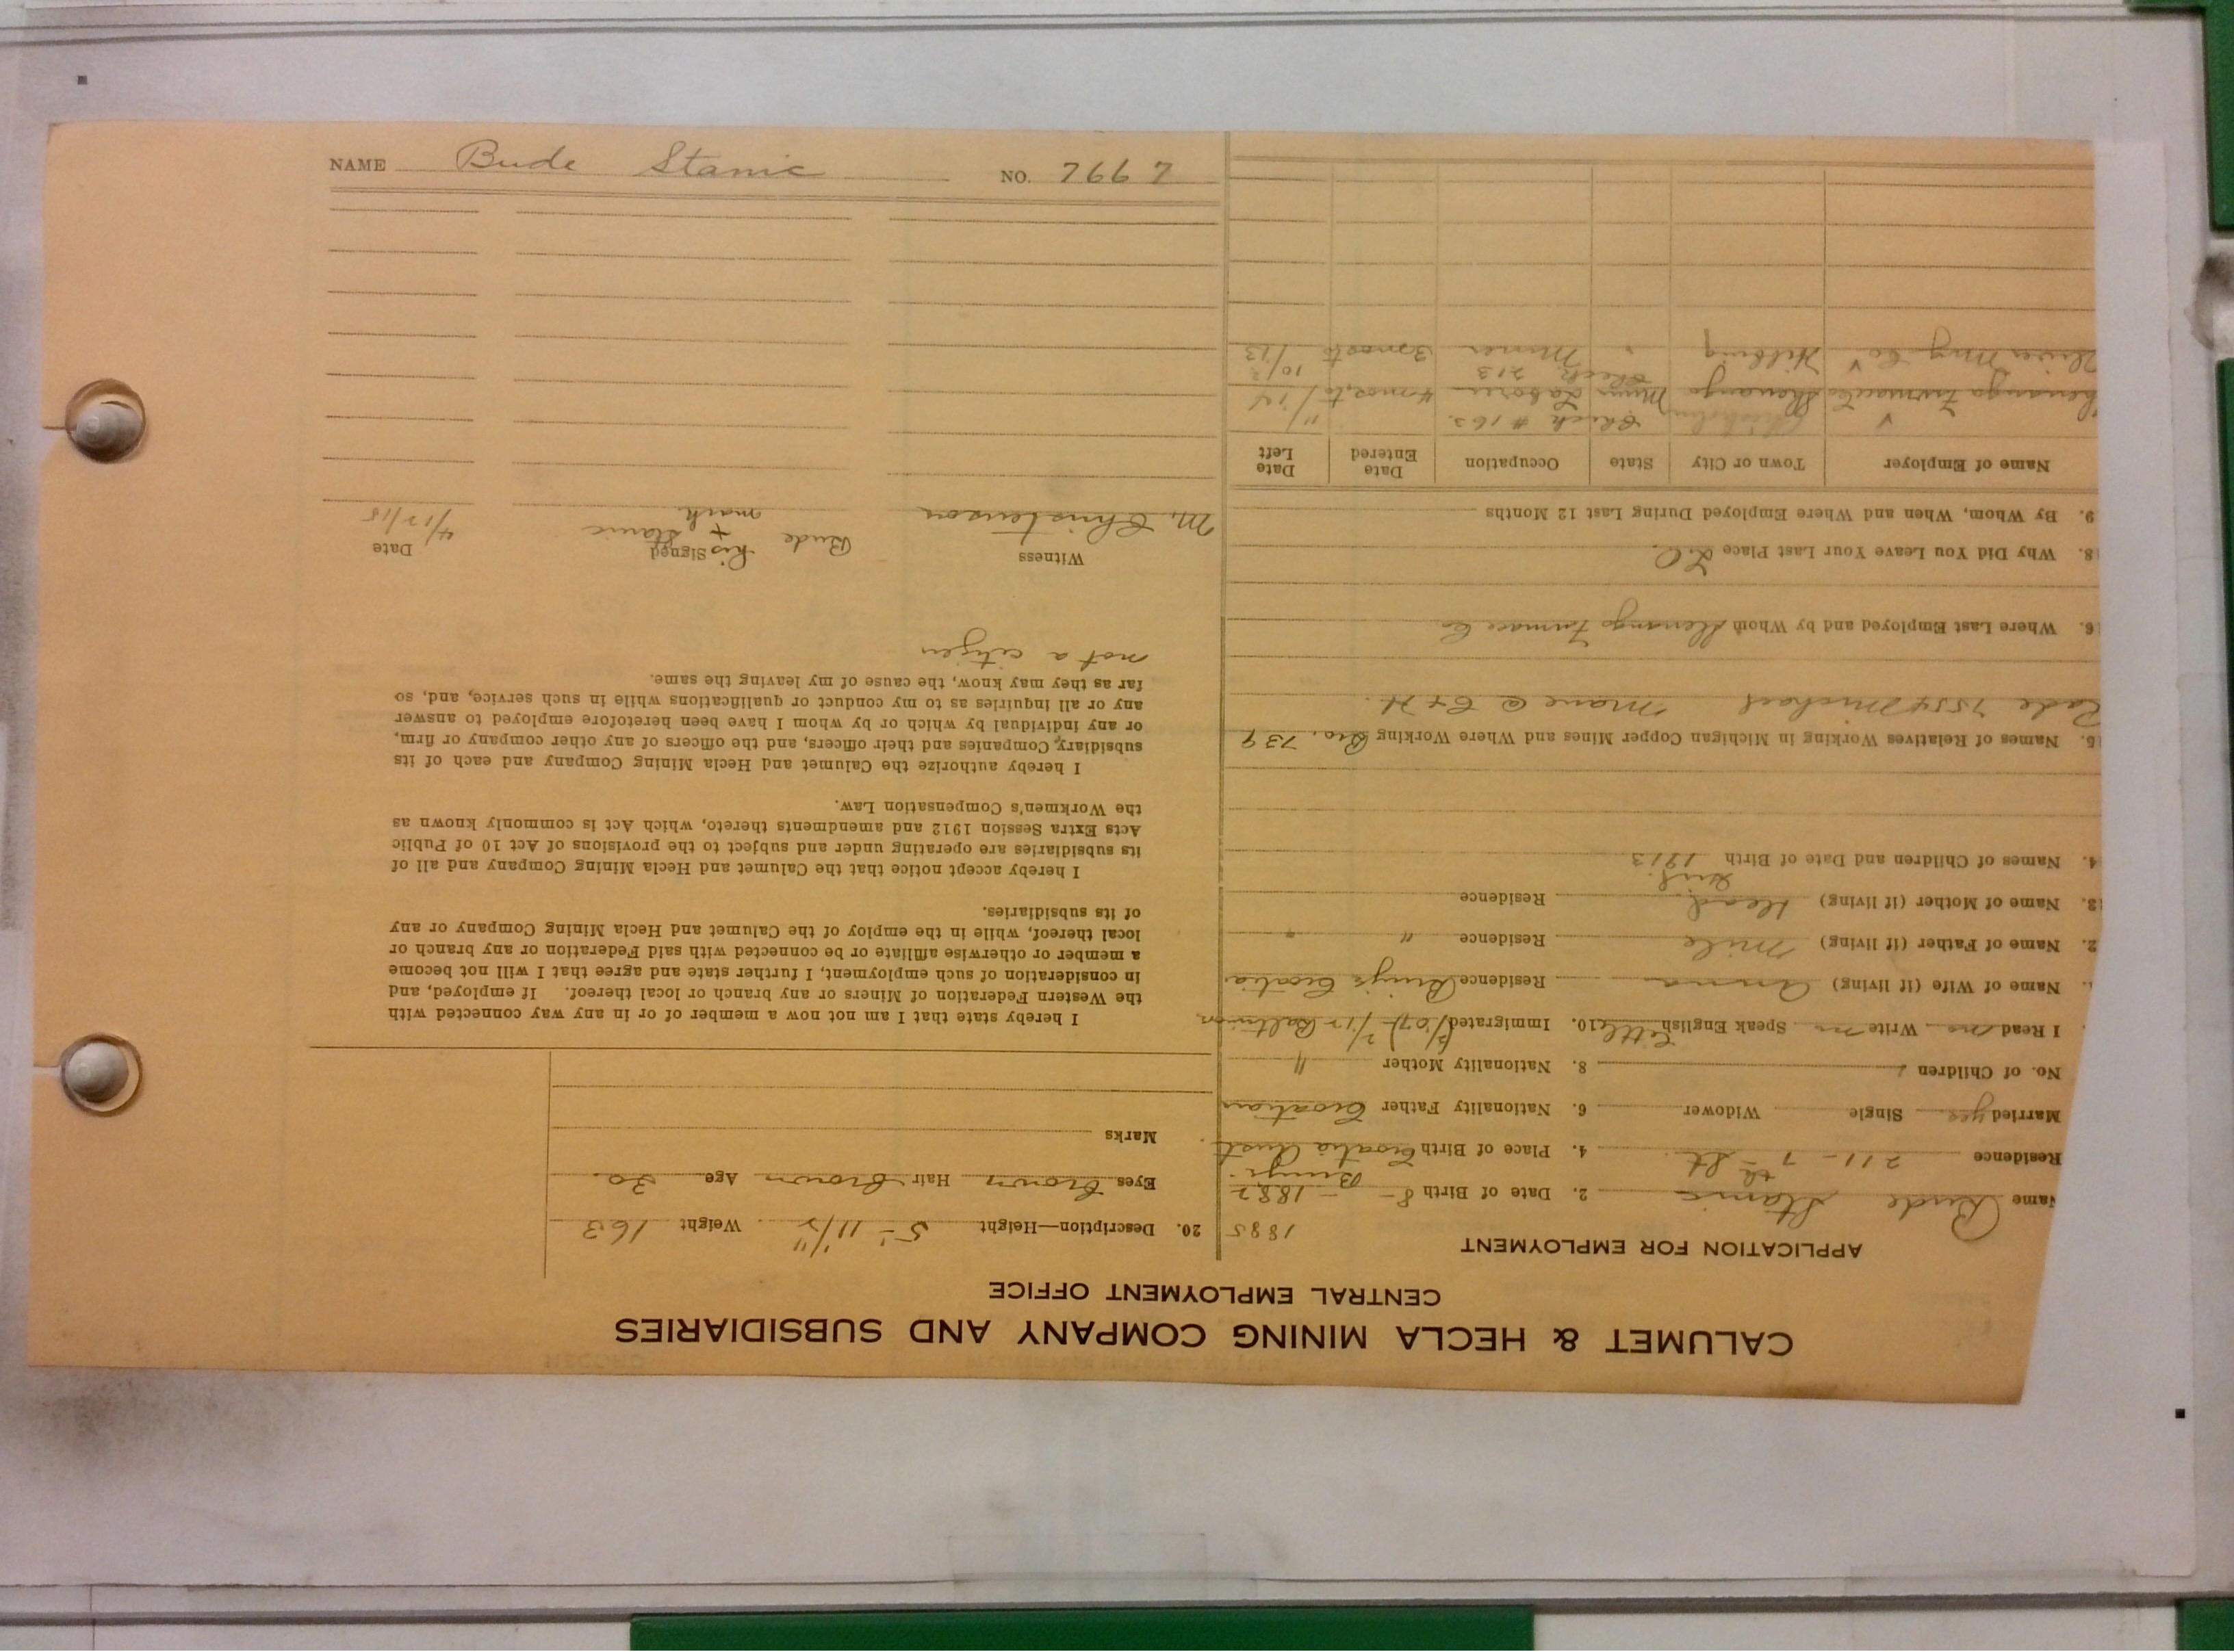 NAME Bude Stanic NO. 7667
CALUMET & HECLA MINING COMPANY AND SUBSIDIARIES
CENTRAL EMPLOYMENT OFFICE
APPLICATION FOR EMPLOYMENT
1885
Name Bude Stanic 2. Date of Birth 8 - - 1882
Residence 211 - 7th St. 4. Place of Birth Croatia Aust
Married yes Single Widower 6. Nationality Father Croatian
No. of Children 1 8. Nationality Mother "
I Read no Write no Speak English little 10. Immigrated
Name of Wife (if living) Anna Residence Croatia
2. Name of Father (if living) Mile Residence " "
3. Name of Mother (if living) Dead Residence
4. Names of Children and Date of Birth 1913
5. Names of Relatives Working in Michigan Copper Mines and Where Working Bro. 739
Rade 7554 Michael Mane @ C & H.
6. Where Last Employed and by Whom Shenango Furnace Co
8. Why Did You Leave Your Last Place
9. By Whom, When and Where Employed During Last 12 Months
Name of Employer Town or City State Occupation Date Entered Date Left
Check # 163.
Shenango Furnace Co Shenango Minn Laborer 4 mos. to 11/14
Check 213
Oliver Mng Co. Hibbing " Miner 3 mos to 10/13
20. Description—Height 5'- 11 1/2" Weight 163
Eyes Brown Hair Brown Age 30
Marks
I hereby state that I am not now a member of or in any way connected with
the Western Federation of Miners or any branch or local thereof. If employed, and
in consideration of such employment, I further state and agree that I will not become
a member or otherwise affiliate or be connected with said Federation or any branch or
local thereof, while in the employ of the Calumet and Hecla Mining Company or any
of its subsidiaries.
I hereby accept notice that the Calumet and Hecla Mining Company and all of
its subsidiaries are operating under and subject to the provisions of Act 10 of Public
Acts Extra Session 1912 and amendments thereto, which Act is commonly known as
the Workmen's Compensation Law.
I hereby authorize the Calumet and Hecla Mining Company and each of its
subsidiary Companies and their officers, and the officers of any other company or firm,
or any individual by which or by whom I have been heretofore employed to answer
any or all inquiries as to my conduct or qualifications while in such service, and, so
far as they may know, the cause of my leaving the same.
not a citizen
Witness Signed Date
M. Christenson Bude his + mark Stanic 4/12/15